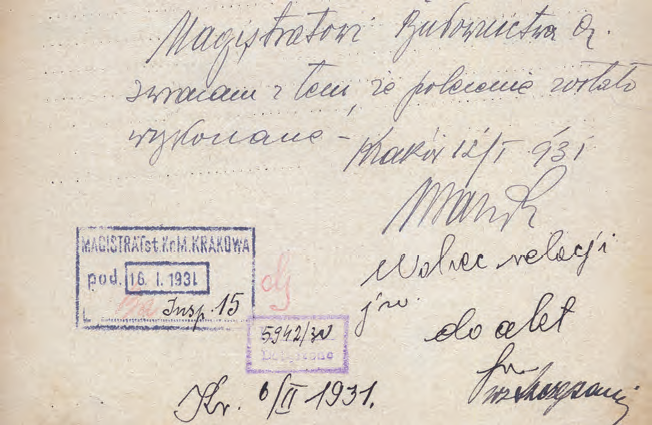 Magistratowi Budownictwa Oz.
zwracam z tem, że polecenie zostało
wykonane –
Kraków 12/I 931
Wobec relacji
jw.
do akt
MAGISTRAT st. Kr. M. KRAKOWA
pod. 16. I. 1931
Insp. 15
5942/30
Kr. 6/II 1931.